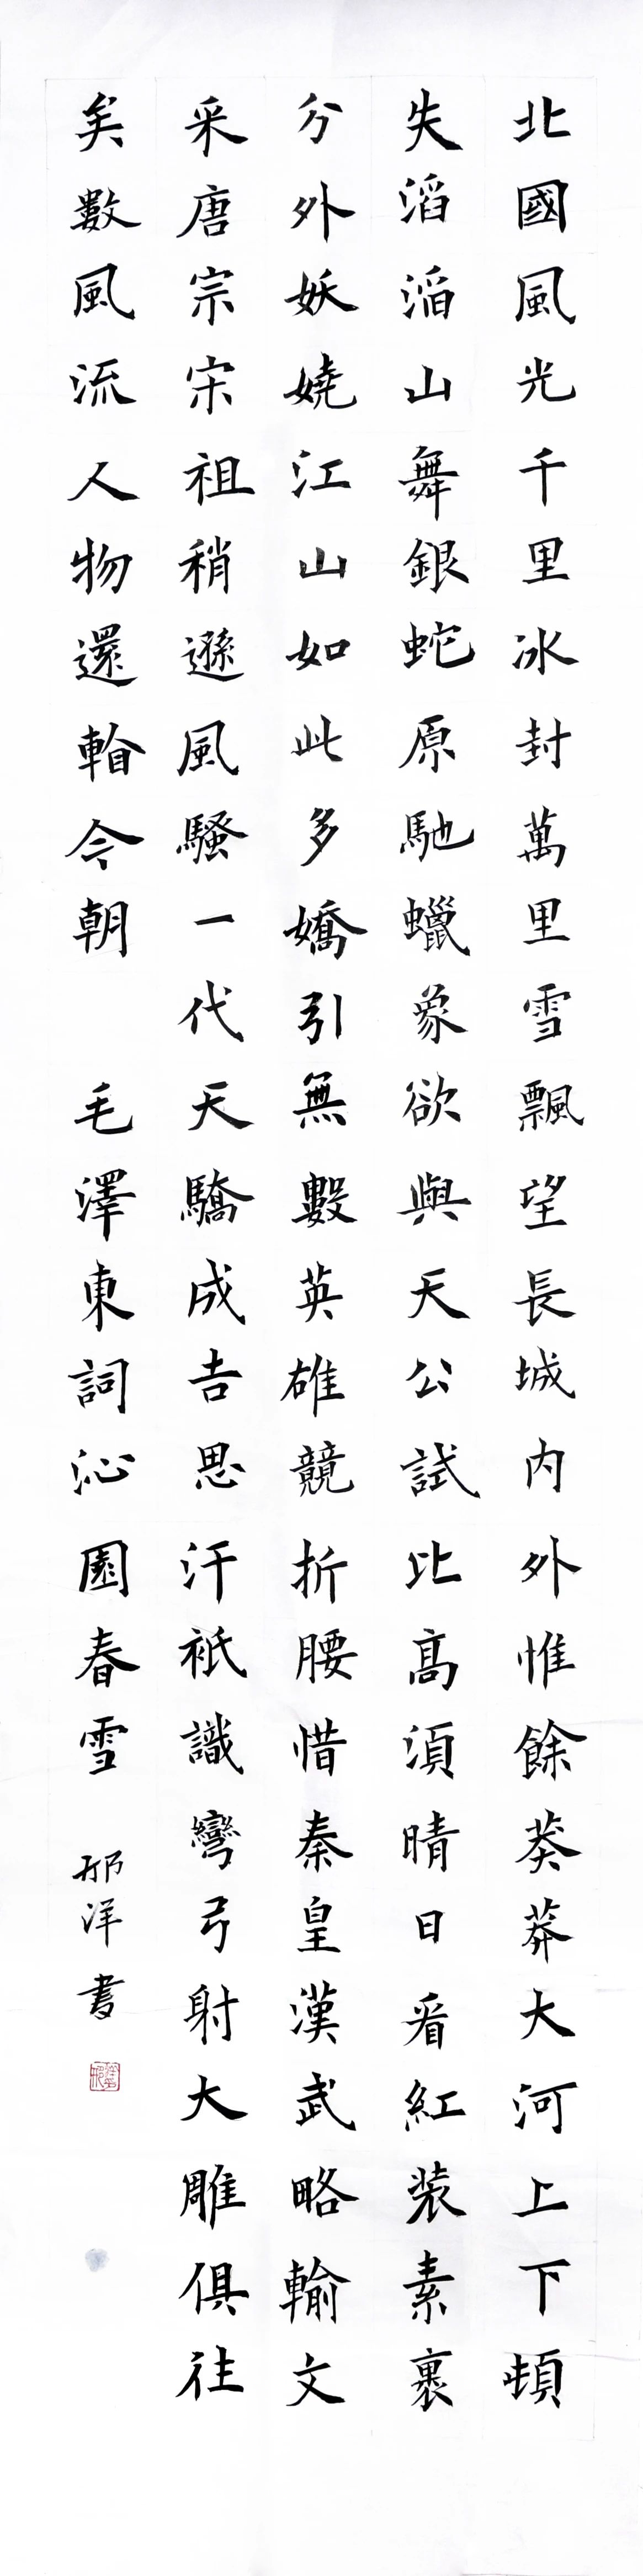 北國風光千里冰封萬里雪飄望長城内外惟餘莽莽大河上下頓
失滔滔山舞銀蛇原馳蠟象欲與天公試比高須晴日看紅装素裹
分外妖嬈江山如此多嬌引無數英雄競折腰惜秦皇漢武略輸文
采唐宗宋祖稍遜風騷一代天驕成吉思汗祗識彎弓射大雕俱往
矣數風流人物還今朝 毛澤東詞沁園春雪 邢洋書